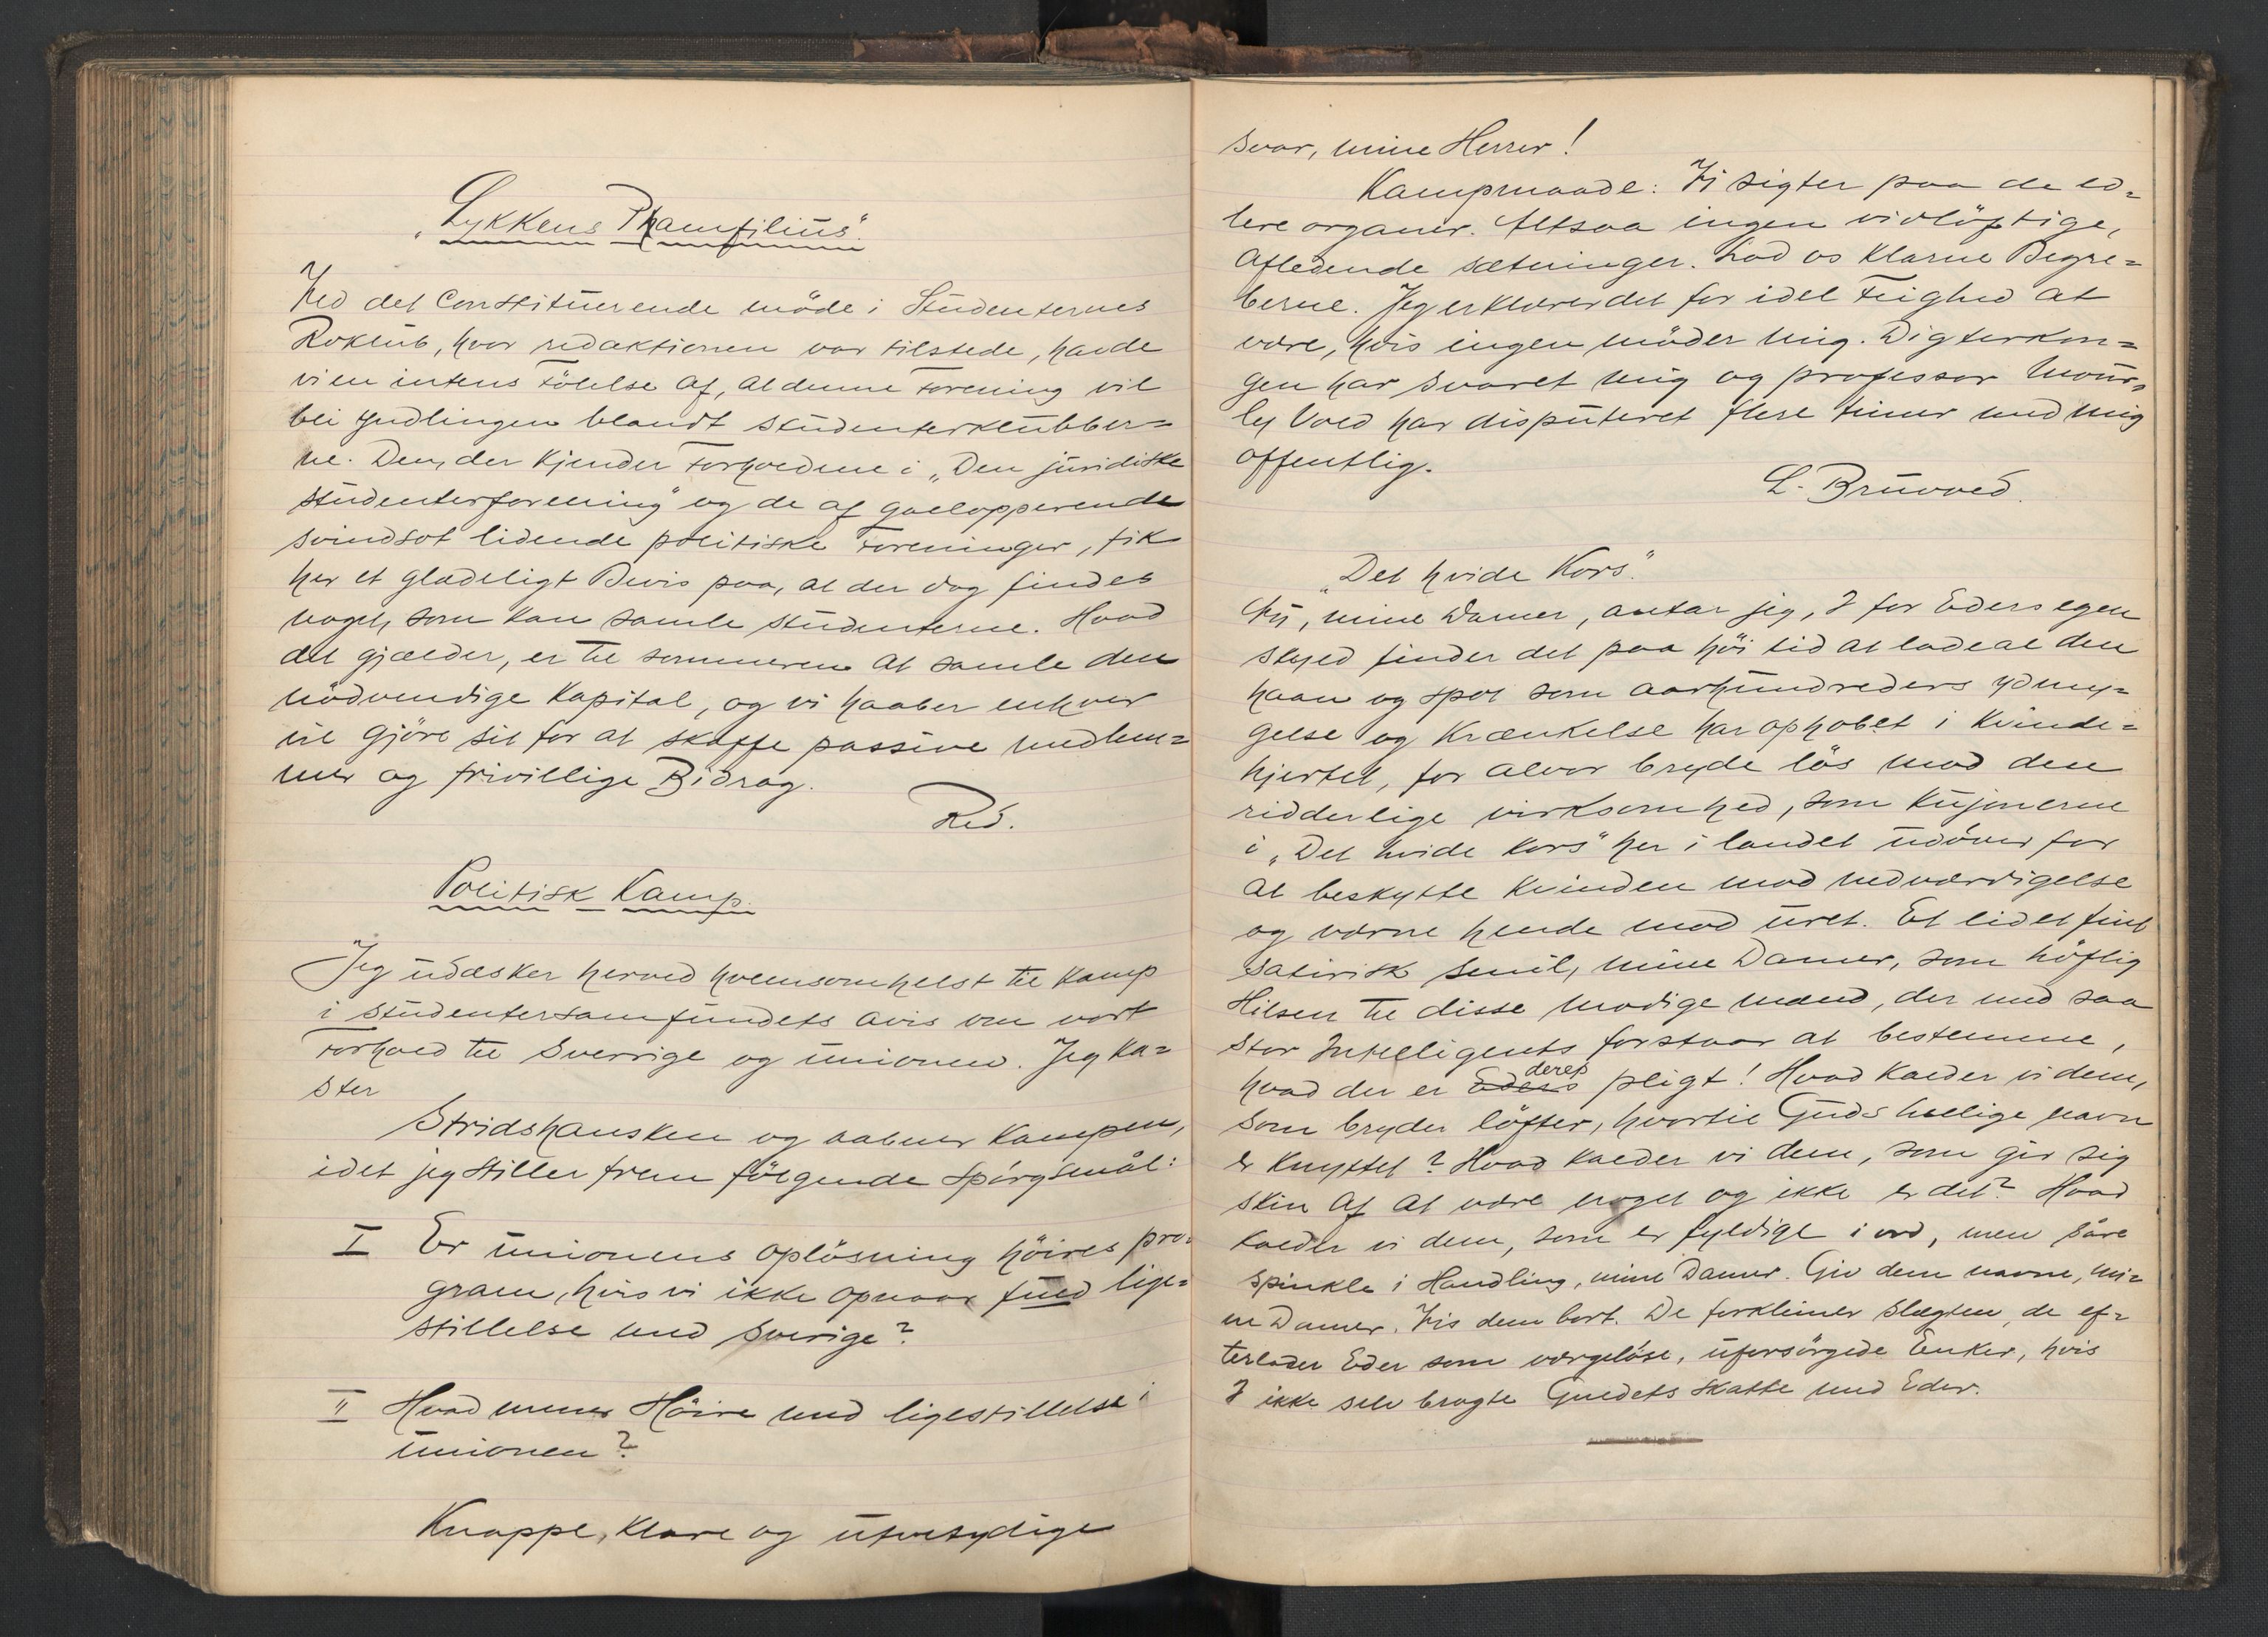 "Lykkens Phamfilius".
Ved det constituerende möde i Studenternes
Roklub, hvor redaktionen var tilstede, havde
vi en intens Fölelse af, at denne Forening vil
bli yndlingen blandt studenterklubber=
ne. Den, der kjender Forholdene i „Den juridiske
studenterforening" og de af gallopperende
svindsot lidende politiske Foreninger, fik
her et glædeligt Bevis paa, at der dog findes
noget, som kan samle studenterne. Hvad
det gjælder, er til sommeren at samle den
nödvendige Kapital, og vi haaber enhver
vil gjöre sit for at skaffe passive medlem=
mer og frivillige Bidrag.
Red.
Politisk Kamp.
Jeg udæsker herved hvemsomhelst til Kamp
i studentersamfundets avis om vort
Forhold til Sverrige og unionen. Jeg ka=
ster
Stridshansken og aabner Kampen,
idet jeg stiller frem fölgende Spörgsmål:
I Er unionens oplösning höires pro=
gram, hvis vi ikke opnaar fuld lige=
stillelse med Sverige?
II Hvad mener Höire med ligestillelse i
unionen?
Knappe, klare og utvetydige
svar, mine Herrer!
Kampmaade: Vi sigter paa de æd=
lere organer. Altsaa ingen vidlöftige,
afledende sætninger. Lad os klarne Begre=
berne. Jeg erklærer det for idel Feighed at
være, hvis ingen möder mig. Digterkon=
gen har svaret mig og professor Mour=
ly Vold har disputeret flere timer med mig
offentlig.
L. Bruvold.
"Det hvide Kors".
Nu, mine Damer, antar jeg, I for Eders egen
skyld finder det paa höi tid at lade al den
haan og spot som aarhundreders ydmy=
gelse og Krænkelse har ophobet i Kvinde=
hjertet, for alvor bryde lös mod den
ridderlige virksomhed, som kujonerne
i „Det hvide Kors" her i landet udöver for
at beskytte Kvinden mod nedværdigelse
og værne hende mod uret. Et lidet fint
satirisk smil, mine Damer, som höflig
Hilsen til disse modige mænd, der med saa
stor Intelligents forstaar at bestemme,
hvad der er Eders deres pligt! Hvad kalder vi dem,
som bryder löfter, hvortil Guds hellige navn
er knyttet? Hvad kalder vi dem, som gir sig
skin af at være noget og ikke er det? Hvad
kalder vi dem, som er fyldige i ord, men såre
spinkle i Handling, mine Damer. Giv dem navne, mi=
ne Damer. Vis dem bort. De forkliner slægten, de ef=
terlader Eder som værgelöse, uforsörgede Enker, hvis
I ikke selv bragte Guldets skatte med Eder.